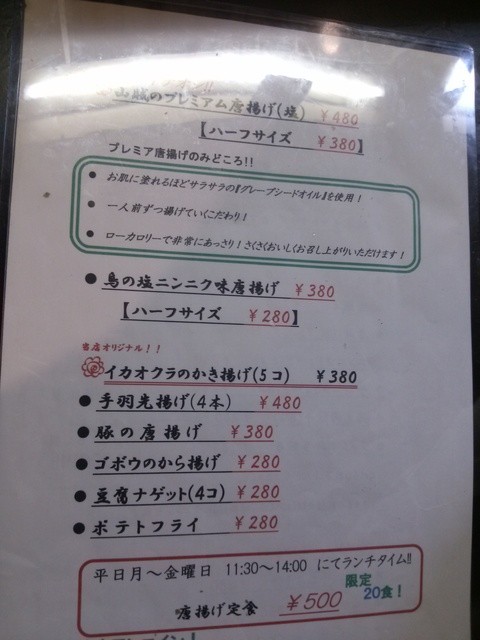 山賊のプレミアム唐揚げ(塩) ¥480
【ハーフサイズ ¥380】
プレミア唐揚げのみどころ!!
● お肌に塗れるほどサラサラの『グレープシードオイル』を使用!
● 一人前ずつ揚げていくこだわり!
● ローカロリーで非常にあっさり!さくさくおいしくお召し上がりいただけます!
● 鳥の塩ニンニク味唐揚げ ¥380
【ハーフサイズ ¥280】
当店オリジナル!!
イカオクラのかき揚げ(5コ) ¥380
● 手羽先揚げ(4本) ¥480
● 豚の唐揚げ ¥380
● ゴボウのから揚げ ¥280
● 豆腐ナゲット(4コ) ¥280
● ポテトフライ ¥280
平日月~金曜日 11:30~14:00 にてランチタイム!!
限定
唐揚げ定食 ¥500 20食!